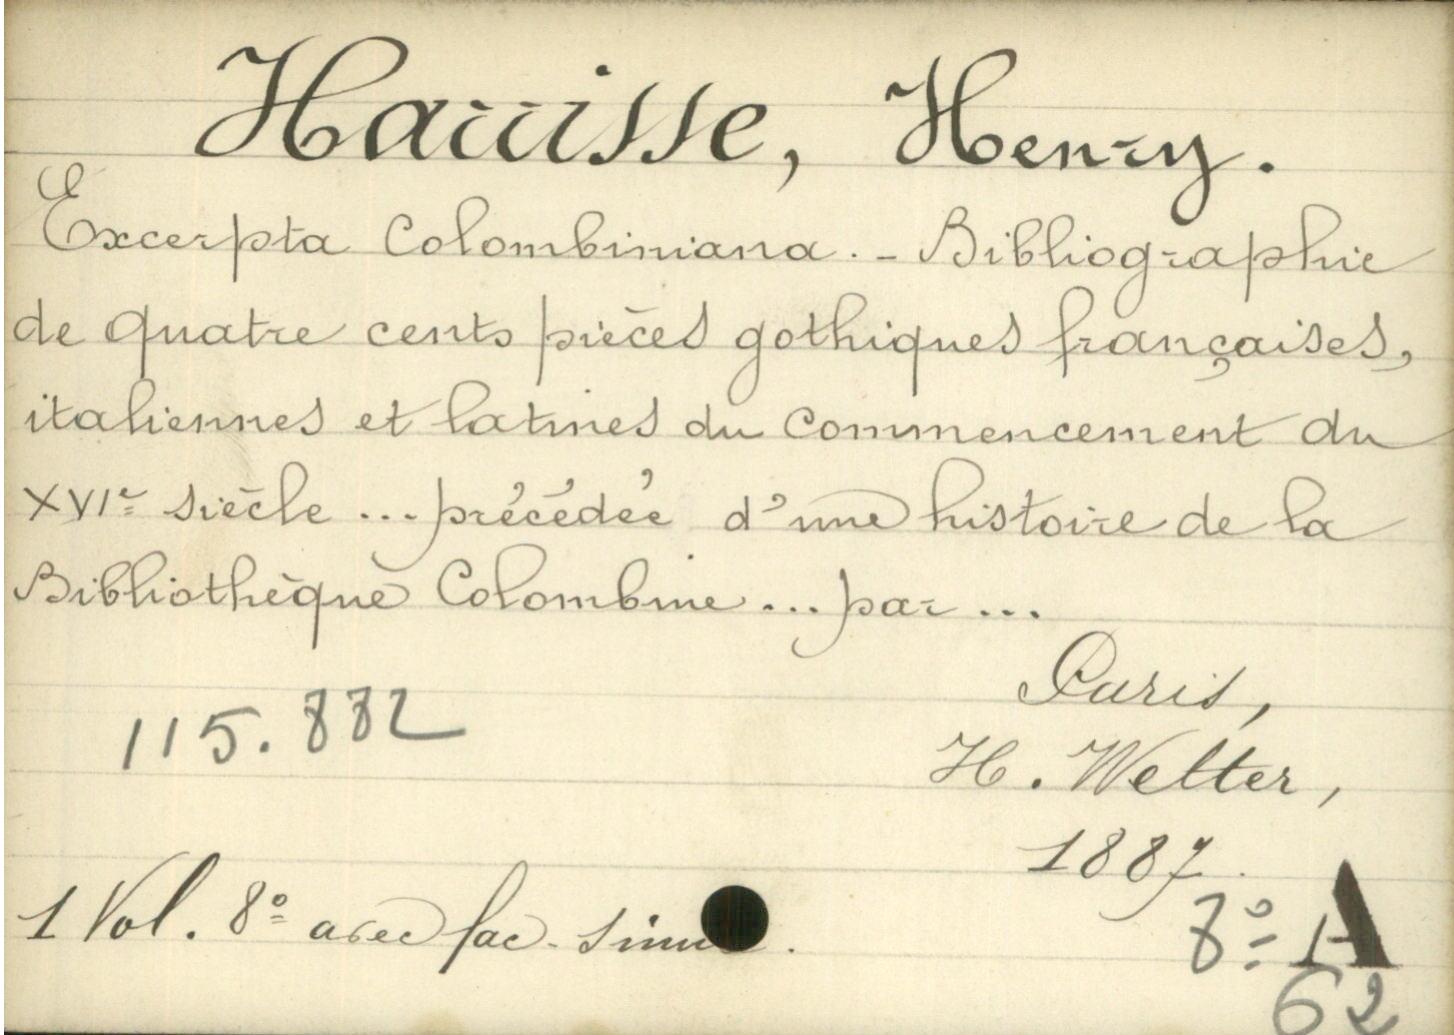 Harrisse, Henry.
Excerpta Colombiniana. - Bibliographie
de quatre cents pièces gothiques françaises,
italiennes et latines du commencement du
XVIe siècle ... précédée d'une histoire de la
Bibliothèque Colombine ... par ...
Paris,
115.882
H. Welter,
1887.
1 Vol. 8º avec fac-simi .
8º A
62